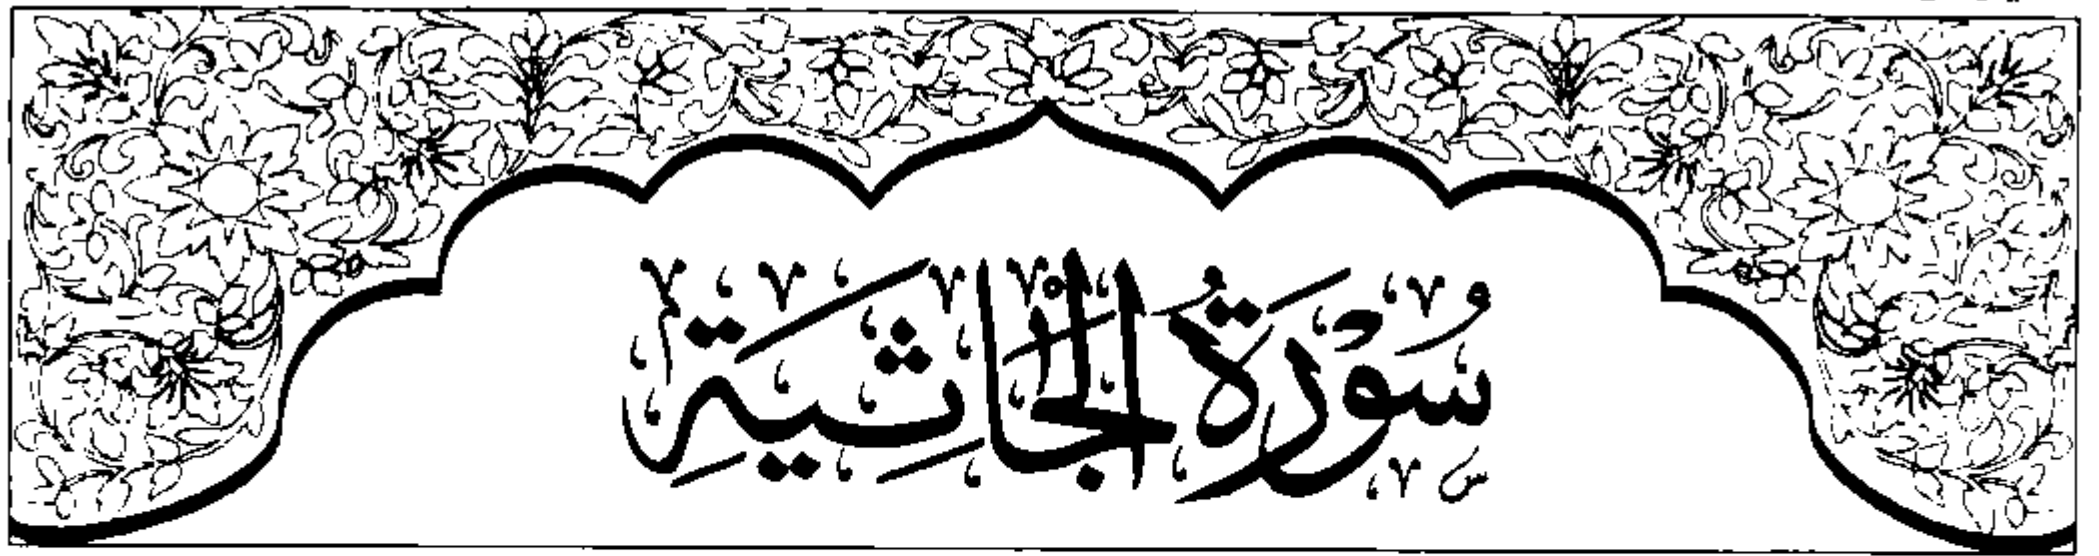 سُوْرَةُ الْجَاثِيَةِ